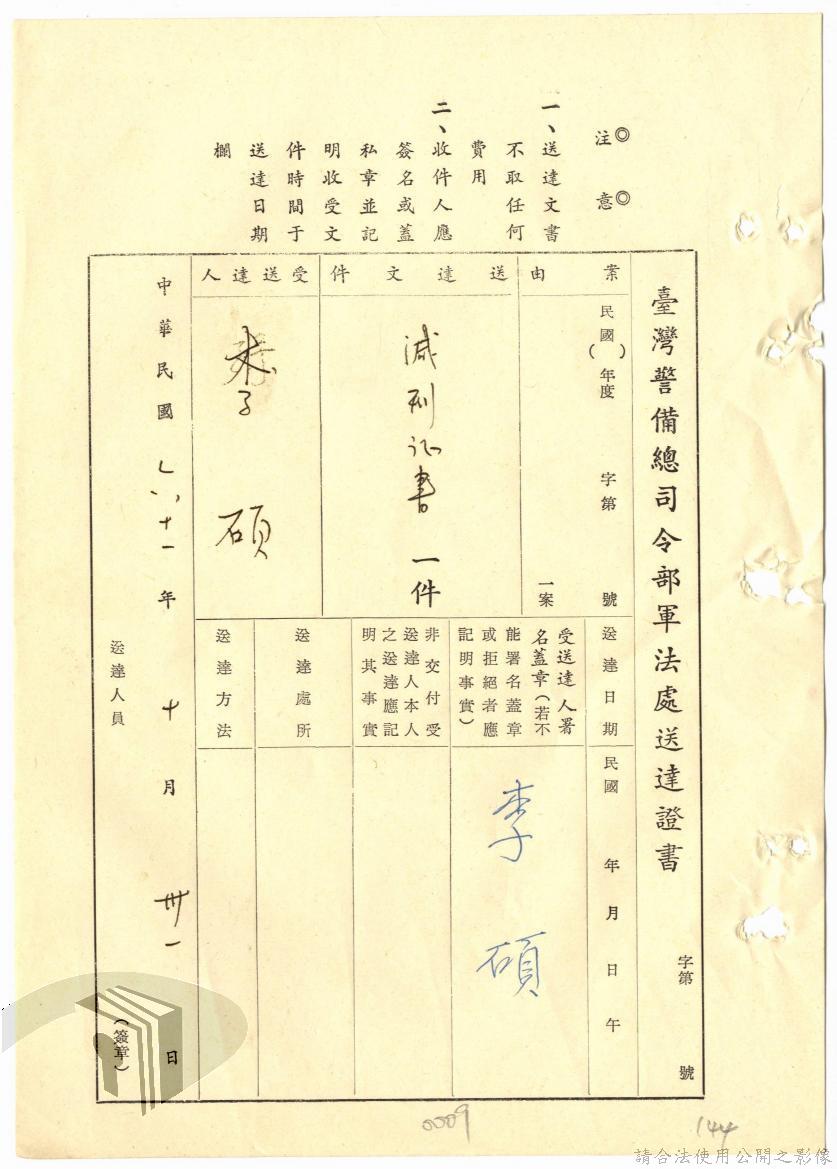 臺灣警備總司令部軍法處送達證書
字第 號
◎注 意◎
一、送達文書不取任何費用
二、收件人應簽名或蓋私章並記明收受文件時間于送達日期欄
案由
民國( )年度 字第 號
一案
送達文件
減刑证書 一件
受送達人
李 碩
送達日期
民國 年 月 日 午
受送達人署名蓋章(若不能署名蓋章或拒絕者應記明事實)
李 碩
非交付受送達人本人之送達應記明其事實
送達處所
送達方法
中華民國 六十一年 十月 卅一日
送達人員 (簽章)
0009
144
請合法使用公開之影像